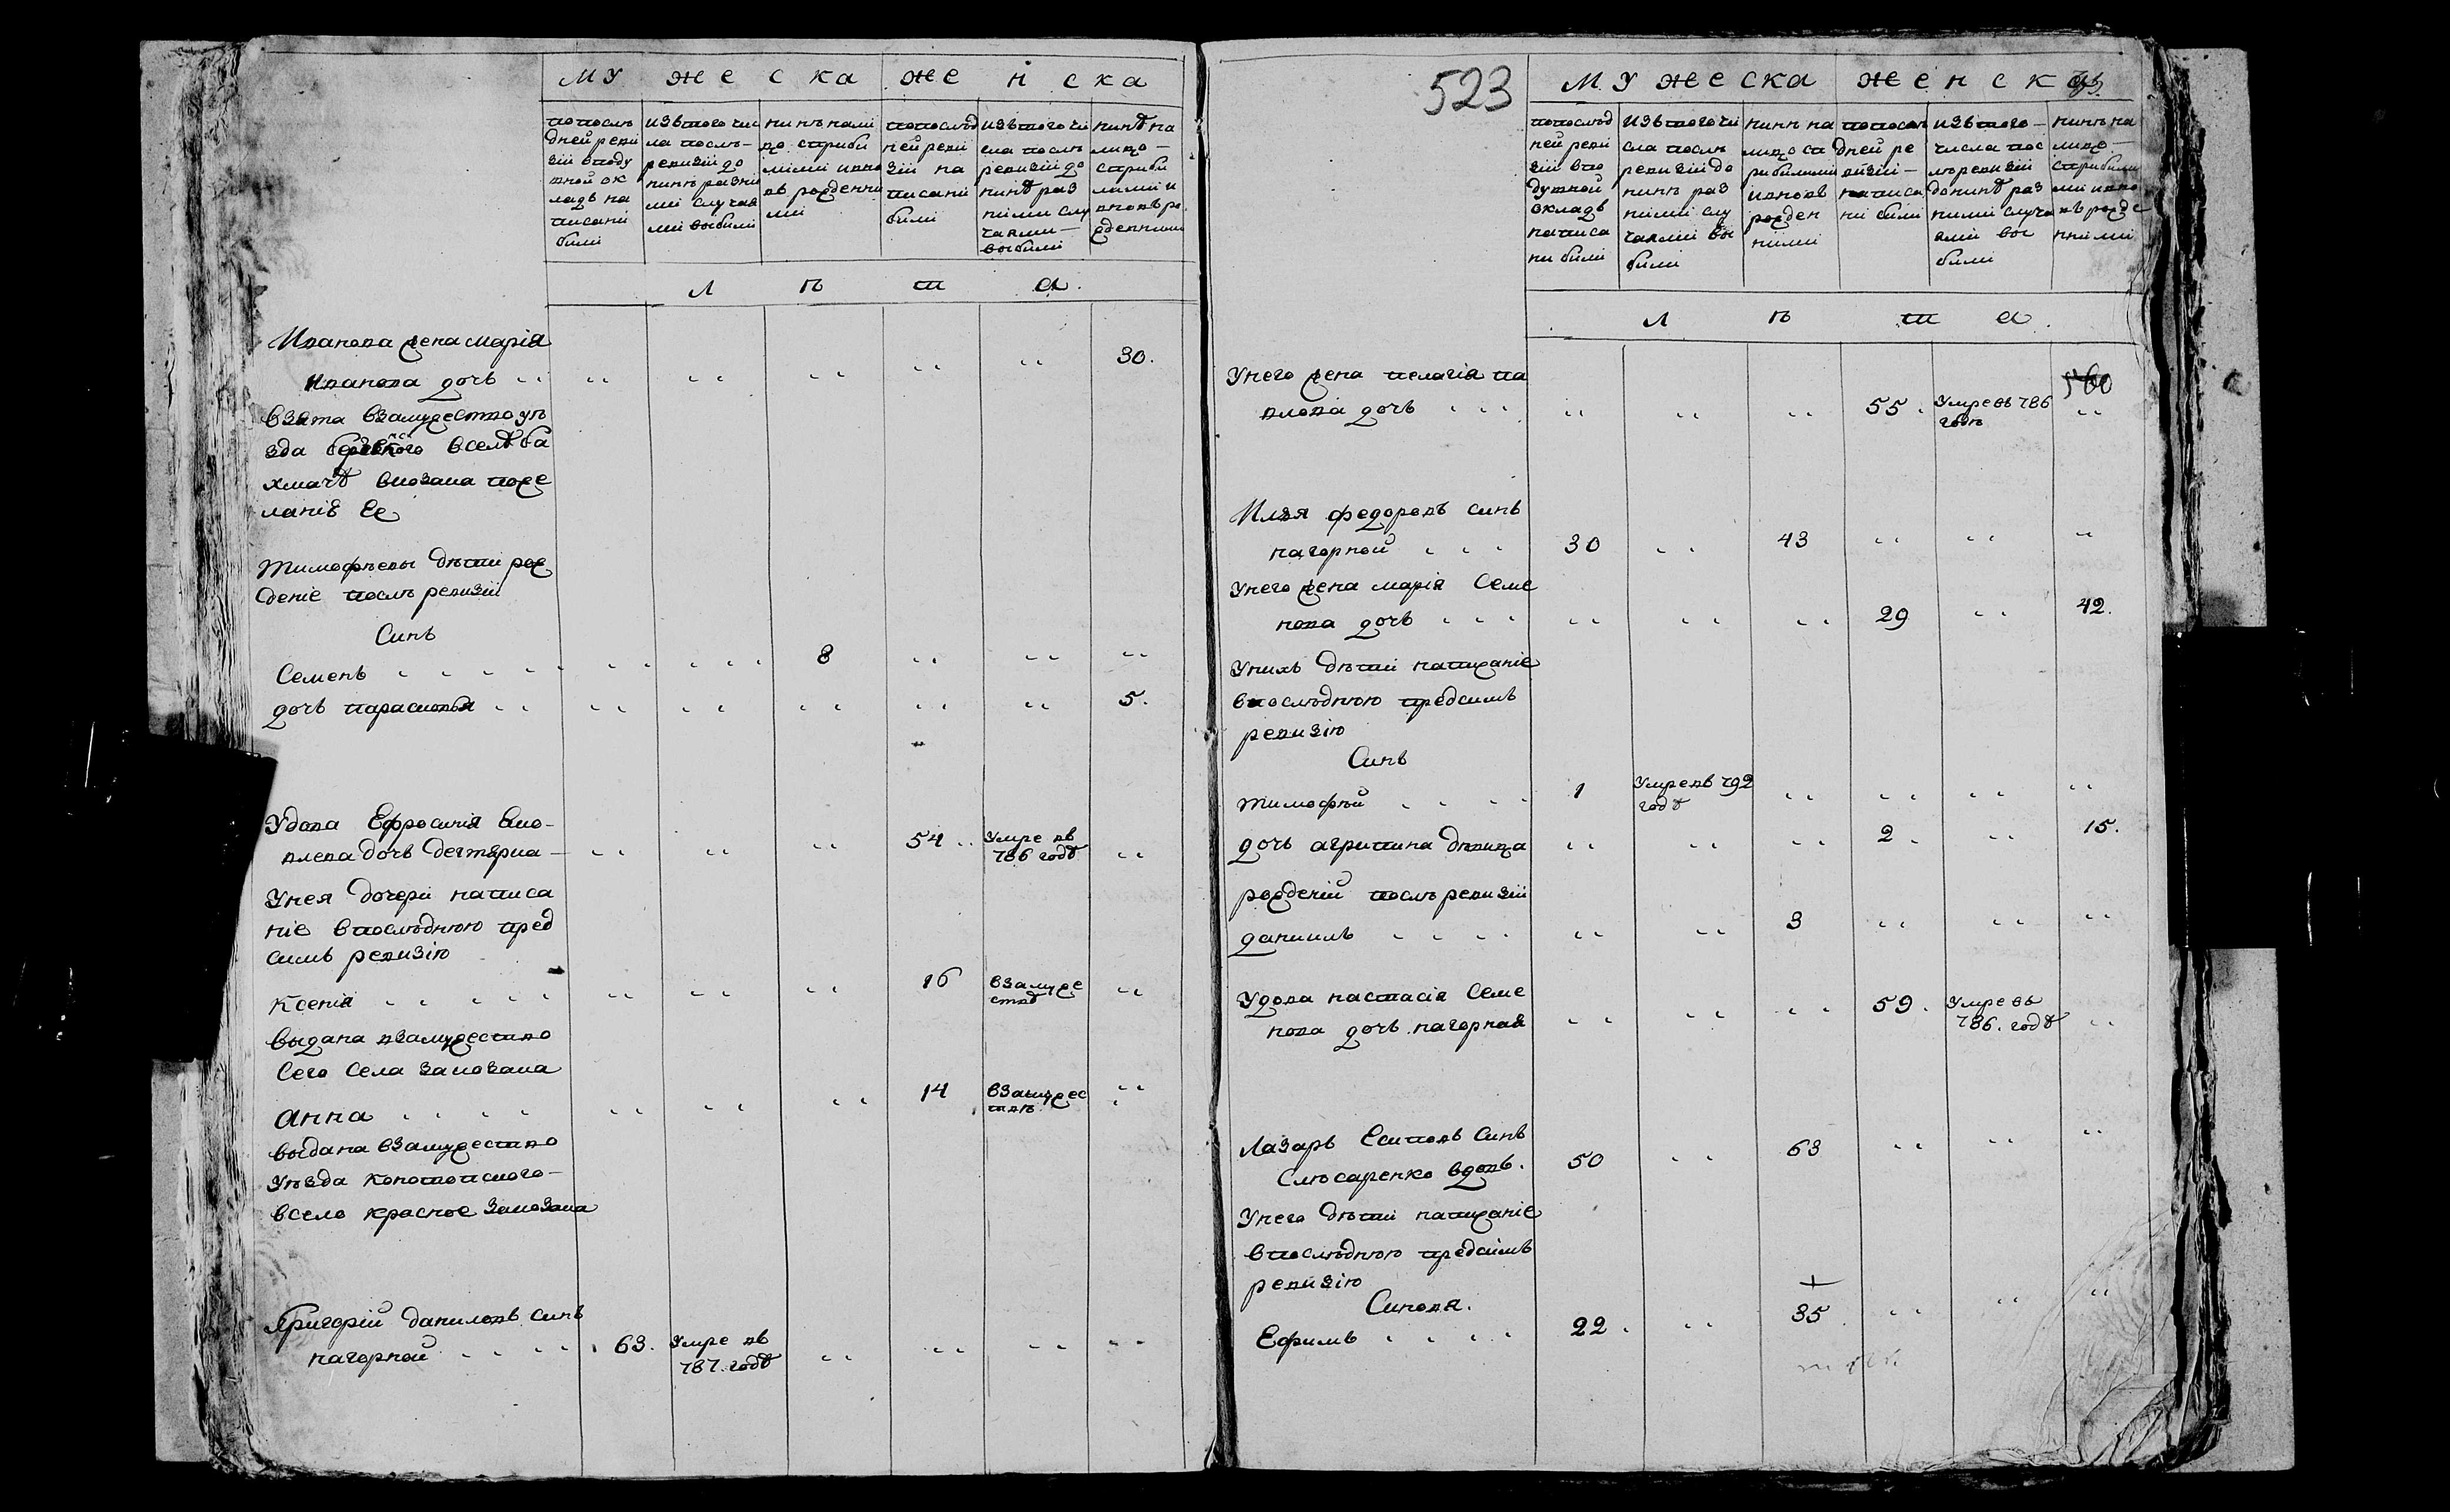 му жеска же нска
попослѣ
дней реви
зіи вподу
шной ок
ладъ на
писани
били
изътого чис
ла послѣ
ревизіи до
нинѣ разни
ми случая
ми выбили
нинѣ нали
цо
попослѣд
ней реви
зіи на
писани
били
изътого чи
сла послѣ
ревизіи до
нинѣ раз
ними слу
чаями
выбили
нинѣ на
лицо
л ѣ т а.
Иванова жена марія
Иванова дочь 30.
взята взамужество уѣ
зда
вселѣ ба
хмачѣ
Тимофѣевы дѣти рож
деніе послѣ ревизіи
Синъ
Семенъ 8
дочь парасковія 5.
Удова Ефросинія Яко-
влева дочь дегтярка
54 Умре въ
786 годѣ
Унея дочери написа
ніе впослѣднюю пред
симъ ревизію
Ксенія 16 взамуже
ствѣ
выдана взамужество
Сего Села закозака
анна 14 взамужес
твѣ
выдана взамужество
Уѣзда конотопского
всело красное закозака
Григорій даниловъ синъ
нагорной 63. Умре въ
787. годѣ
523
мужеска женска
попослѣд
ней реви
зіи впо
душной
окладъ
написа
ни били
изътого чи
сла послѣ
ревизіи до
нинѣ раз
ними слу
чаями вы
били
нинѣ на
лицо
рожден
ними
попослѣ
дней ре
визіи
написа
ни били
изътого
числа пос
лѣ ревизіи
до нинѣ раз
ними случа
ями вы
били
нинѣ на
лицо
л ѣ т а.
560
Унего жена пелагія па
влова дочь 55. Умре въ 786
годѣ
Илья федоровъ синъ
нагорной 30 43
Унего жена марія Семе
нова дочь 29 42.
Унихъ дѣти написаніе
впослѣднюю предсимъ
ревизію
Синъ
тимофѣй 1 Умре въ 792
годѣ
дочь агрипина дѣвица 2. 15.
рожденій послѣ ревизіи
данилъ 3
Удова настасія Семе
нова дочь нагорная 59. Умре въ
786. годѣ
Лазарь Есиповъ Синъ
Слюсаренко вдовъ. 50 63
Унего дѣти написаніе
впослѣднюю предсимъ
ревизію
Синовя.
Ефимъ 22. 35